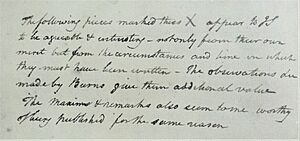 The following pieces marked thus X appear to JS
to be agreeable & interesting - not only from their own
merit but from the circumstances and time in which
they must have been written - The observations
made by Burns give them additional value
The Maxims & remarks also seem to me worthy
of being published for the same reason